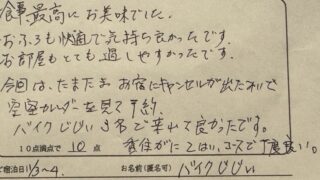 食事最高に お美味でした。
おふろも快適で気持ち良かったです。
お部屋もとても過しやすかったです。
今回は、たまたま お宿にキャンセルが出たれいで
空室カレンダーを見て予約。
バイクじじい3名で来れて良かったです。
10点満点で 10 点 責任がに ては、コースで 良い。
ご宿泊日 11/3〜4. お名前(匿名可) バイクじじい